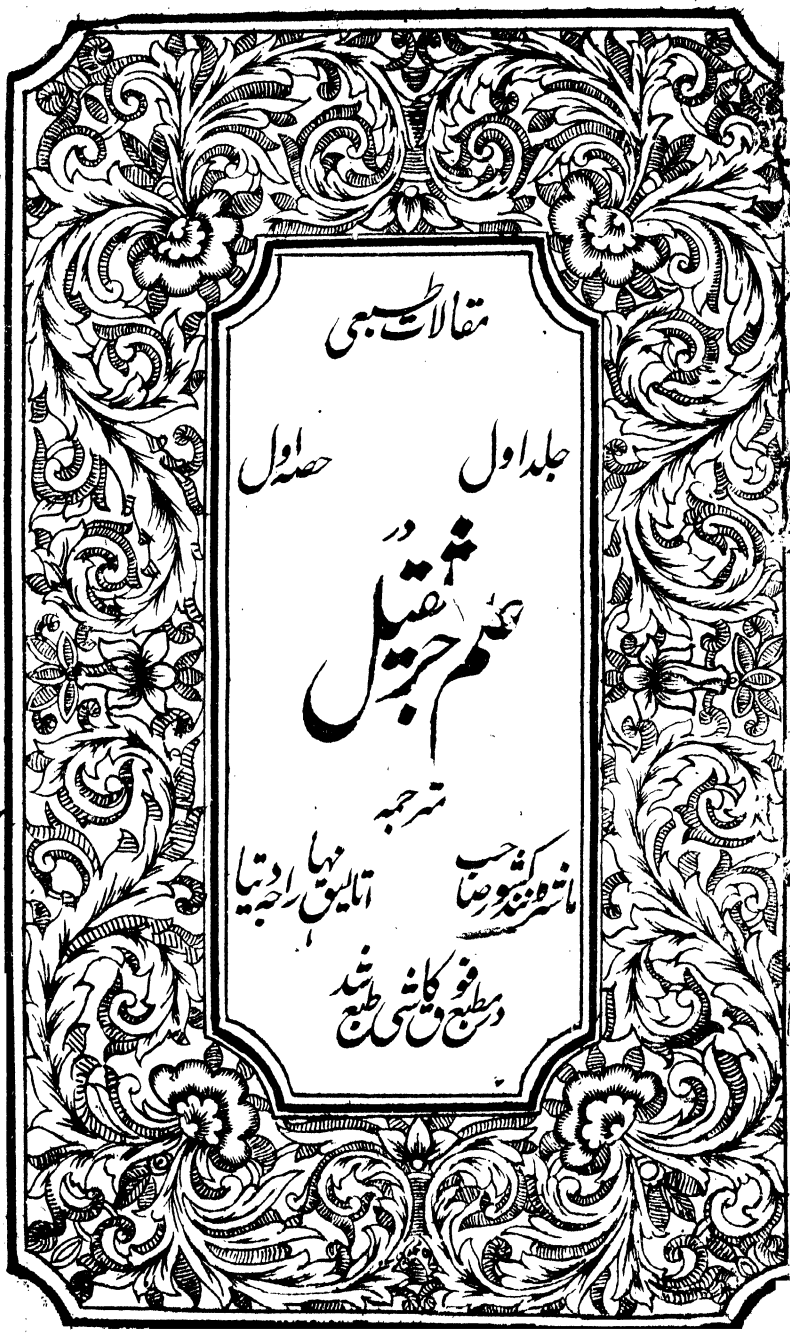 مقالات طبیعی
جلد اول حصہ اول
در
علم جر ثقیل
مترجمہ
ماسٹر نند کشور صاحب اتالیق نہا راجہ دتیا
در مطبع فوق کاشی طبع شد